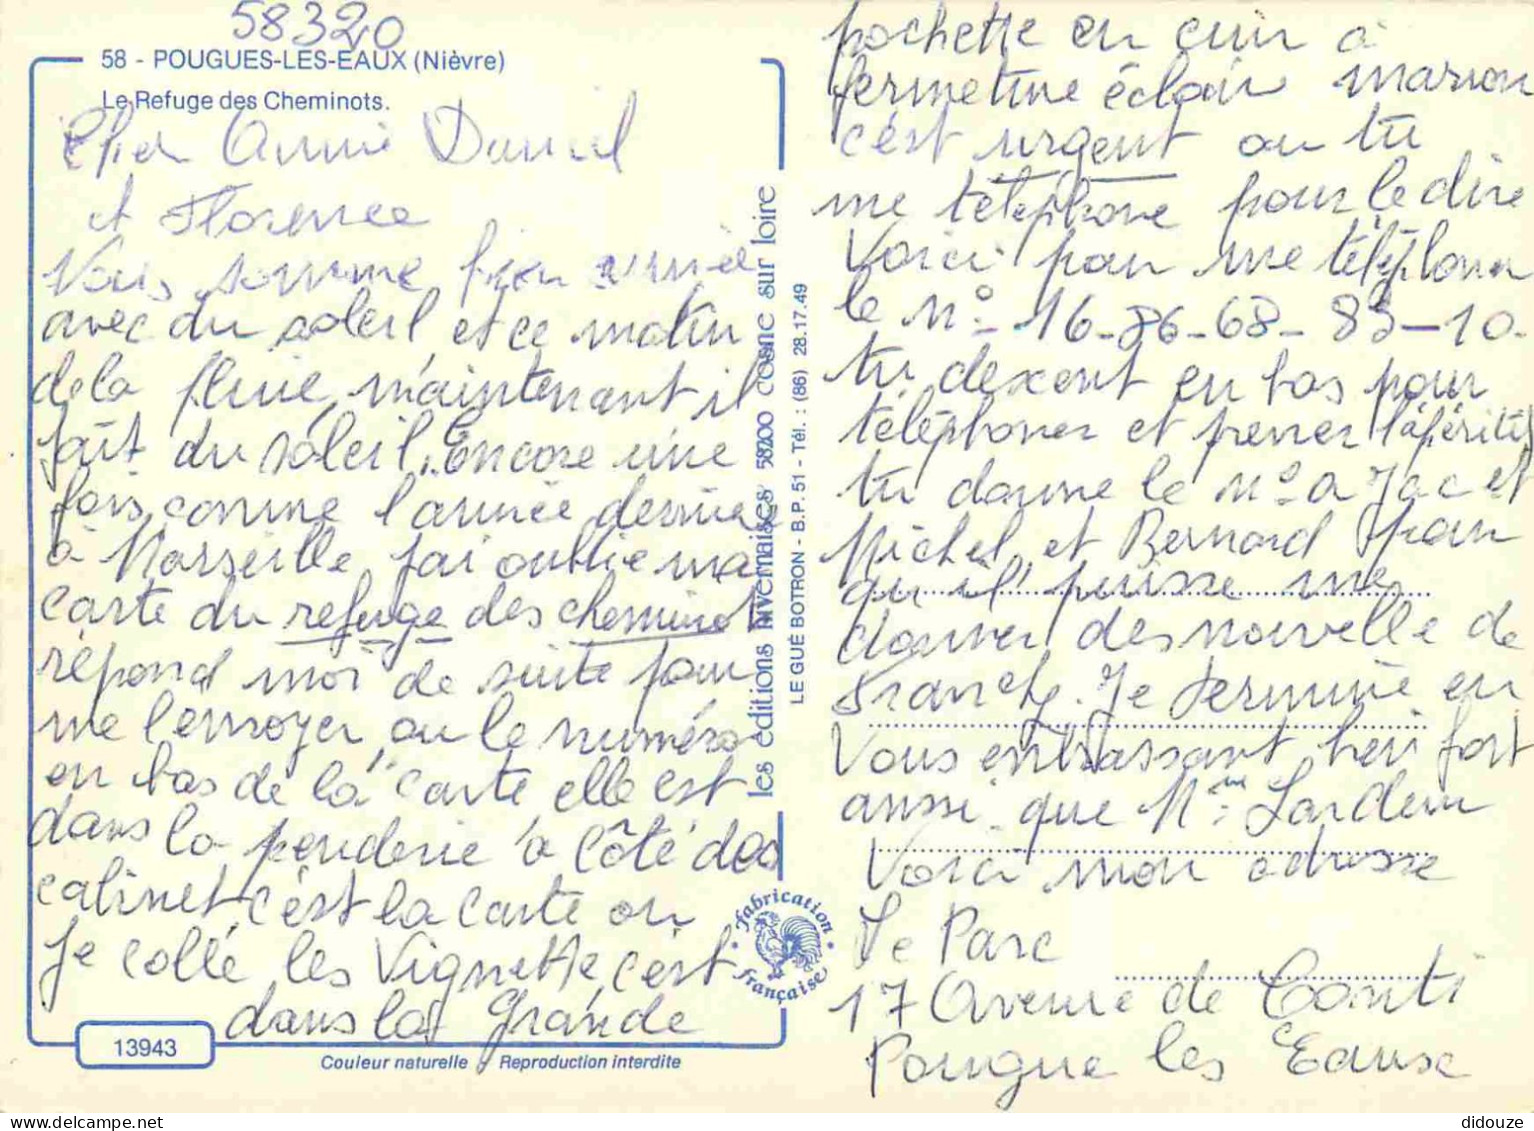 58320
58 - POUGUES-LES-EAUX (Nièvre)
Le Refuge des Cheminots.
Cher Annie Daniel
et Florence
Nous somme bien arrivée
avec du soleil et ce matin
de la pluie, maintenant il
fait du soleil. Encore une
fois comme l'année derniere
à Marseille j'ai oublie ma
carte du refuge des cheminot
répond moi de suite pour
me l'envoyer ou le numéro
en bas de la carte elle est
dans la penderie à côté des
cabinet, c'est la carte ou
je collé les vignette, c'est
dans la grande
pochette en cuir à
fermeture éclair marron
c'est urgent ou tu
me téléphone pour le dire
Voici pour me téléphoner
le n° 16-86-68-85-10.
tu descent en bas pour
téléphoner et prener l'apéritif
tu donne le n° a Jac et
Michel, et Bernard pour
qu'il puisse me
donner des nouvelle de
Franck. Je termine en
Vous embrassant bien fort
aussi que Mme Lardeur
Voici mon adresse
Le Parc
17 Avenue de Conti
Pougue les Eause
les éditions nivernaises 58200 cosne sur loire
LE GUÉ BOTRON - B.P. 51 - Tél. : (86) 28.17.49
fabrication française
13943
Couleur naturelle Reproduction interdite
delcampe.net
didouze